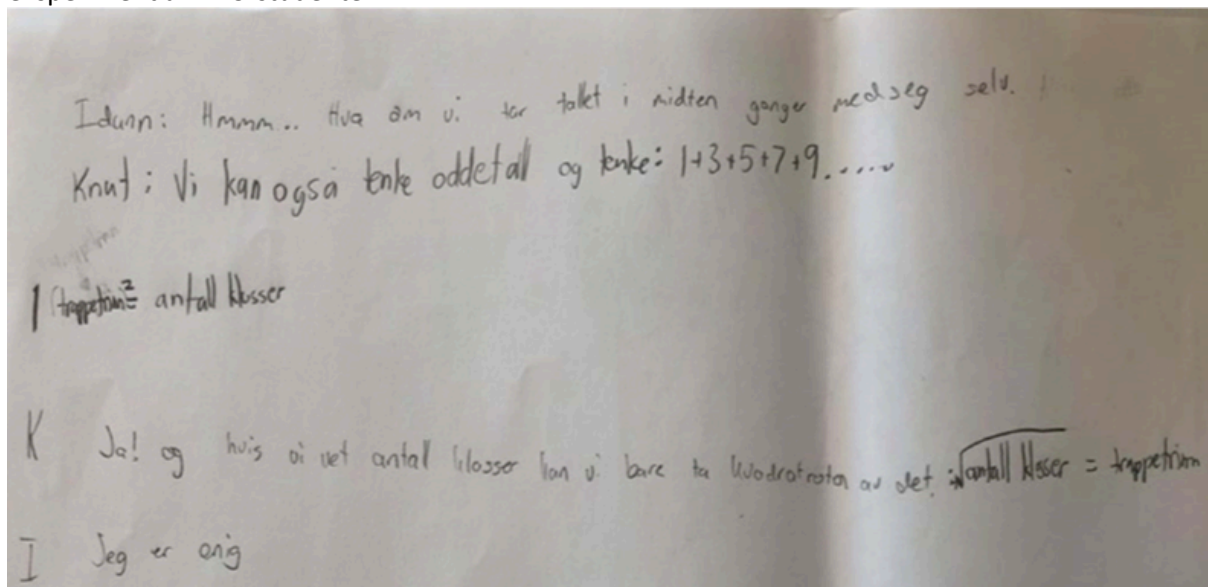 Idunn: Hmmm.. Hva om vi tar tallet i midten ganger med seg selv.
Knut: Vi kan også tenke oddetall og tenke: 1+3+5+7+9.....
I trappetrinn² = antall klosser
K Ja! og hvis vi vet antall klosser kan vi bare ta kvadratroten av det: √antall klosser = trappetrinn
I Jeg er enig